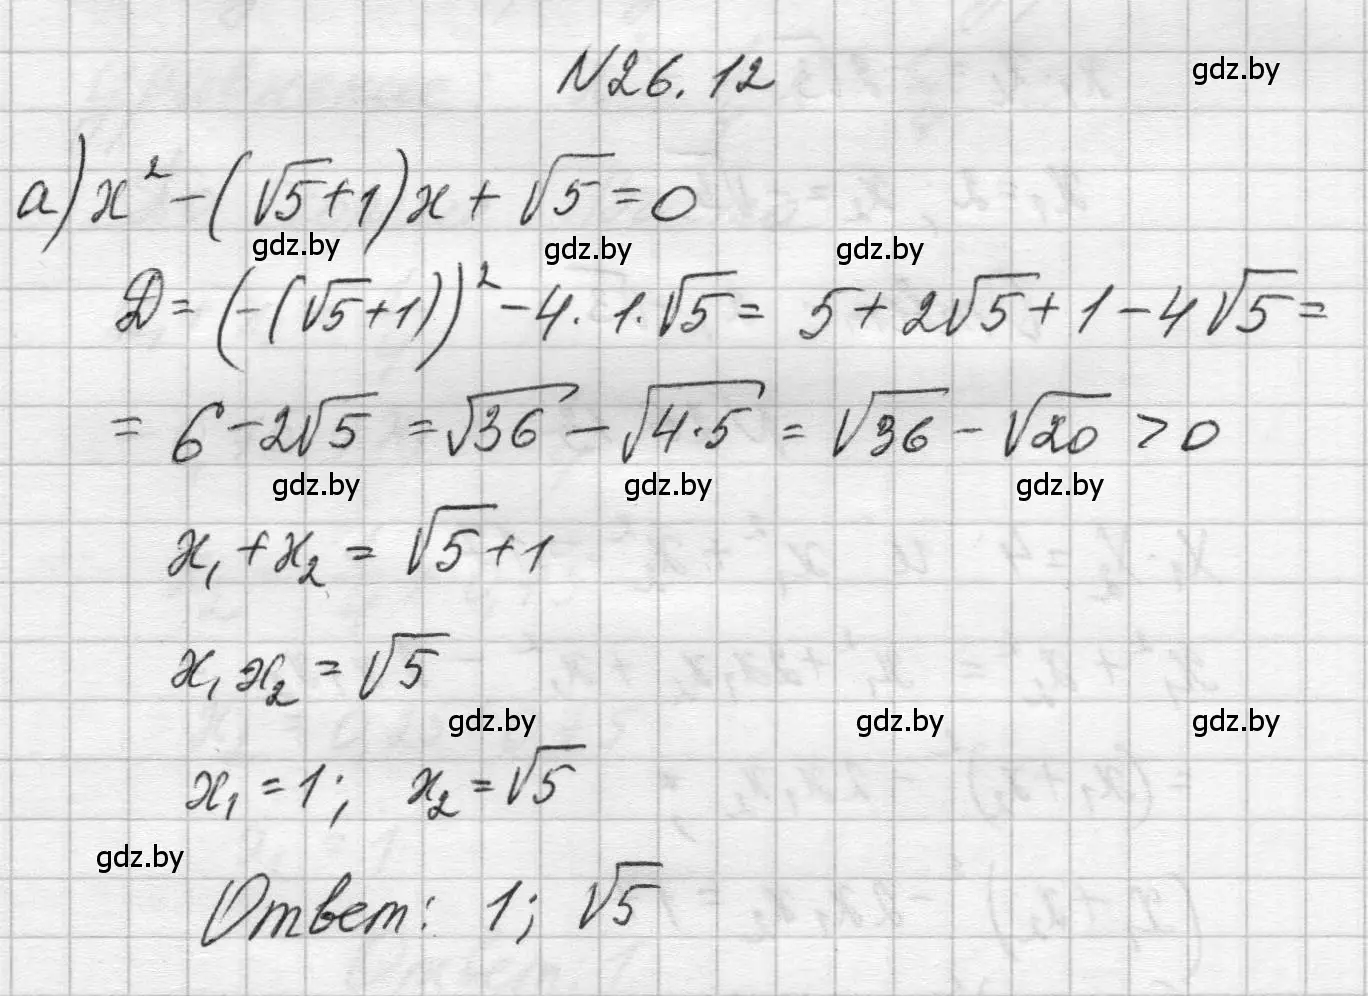 N26.12
gdz.by
а) x² - (√5+1)x + √5 = 0
gdz.by gdz.by gdz.by
D = (-(√5+1))² - 4·1·√5 = 5+2√5+1-4√5 =
= 6-2√5 = √36 - √4·5 = √36 - √20 > 0
gdz.by gdz.by gdz.by
x₁+x₂ = √5+1
x₁x₂ = √5
gdz.by gdz.by gdz.by
x₁ = 1; x₂ = √5
gdz.by
Ответ: 1; √5